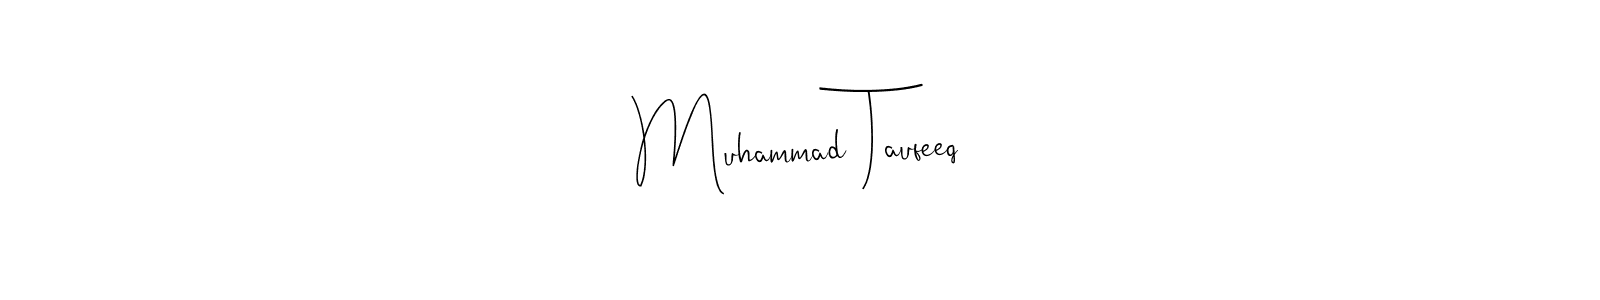 Muhammad Taufeeq